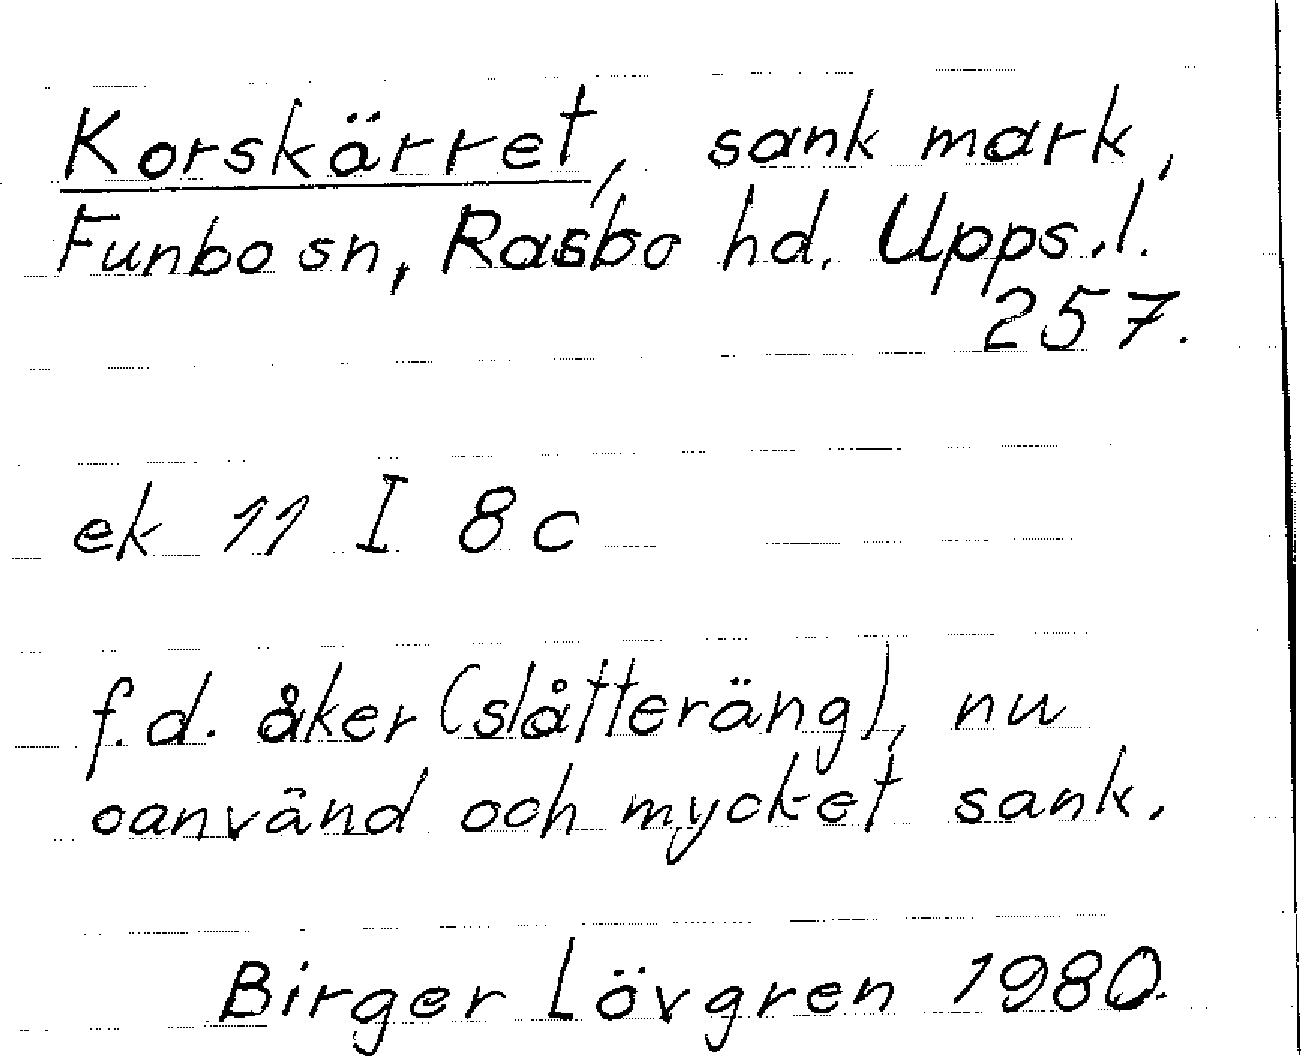 Korskärret, sank mark,
Funbo sn, Rasbo hd. Upps.l.
257.
ek 11 I 8c
f.d. åker (slåtteräng), nu
oanvänd och mycket sank.
Birger Lövgren 1980.